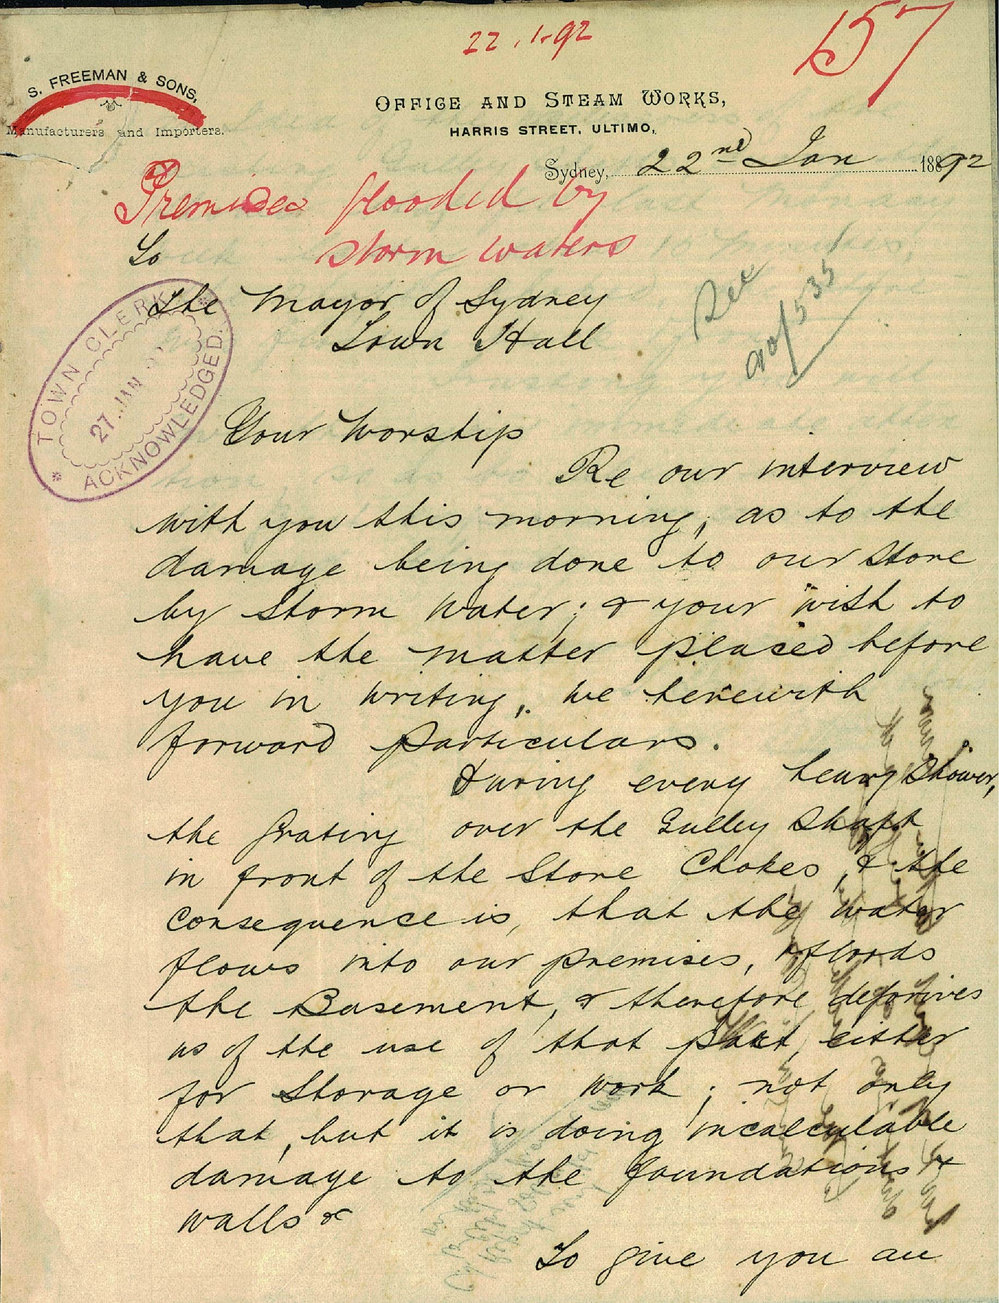 22.1.92
157
S. FREEMAN & SONS,
Manufacturers and Importers.
OFFICE AND STEAM WORKS,
HARRIS STREET, ULTIMO,
Sydney, 22nd Jan 1892
Premises flooded by
storm waters
To
The Mayor of Sydney
Town Hall
TOWN CLERK
27 JAN
ACKNOWLEDGED
Your Worship
Re our interview
with you this morning, as to the
damage being done to our store
by storm water; & your wish to
have the matter placed before
you in writing, we herewith
forward particulars.
During every heavy shower,
the grating over the Gulley Shaft
in front of the Store Chokes, & the
consequence is, that the water
flows into our premises, & floods
the Basement, & therefore deprives
us of the use of that part, either
for storage or work; not only
that, but it is doing incalculable
damage to the foundations &
walls &
To give you an